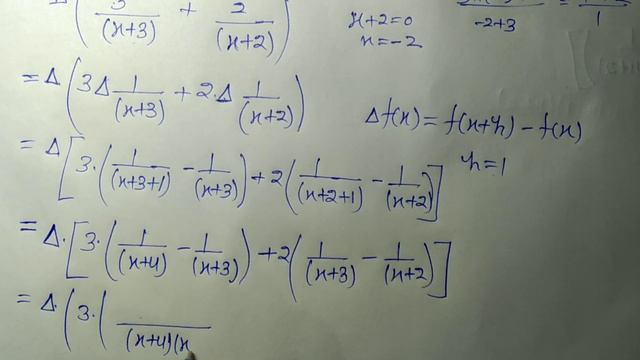 Δ(3/(x+3) + 2/(x+2))
x+2=0
x=-2
-2+3
1
=Δ(3Δ 1/(x+3) + 2·Δ 1/(x+2))
Δf(x) = f(x+h) - f(x)
h=1
=Δ[3·(1/(x+3+1) - 1/(x+3)) + 2(1/(x+2+1) - 1/(x+2))]
=Δ·[3·(1/(x+4) - 1/(x+3)) + 2(1/(x+3) - 1/(x+2))]
=Δ·(3·( /(x+4)(x